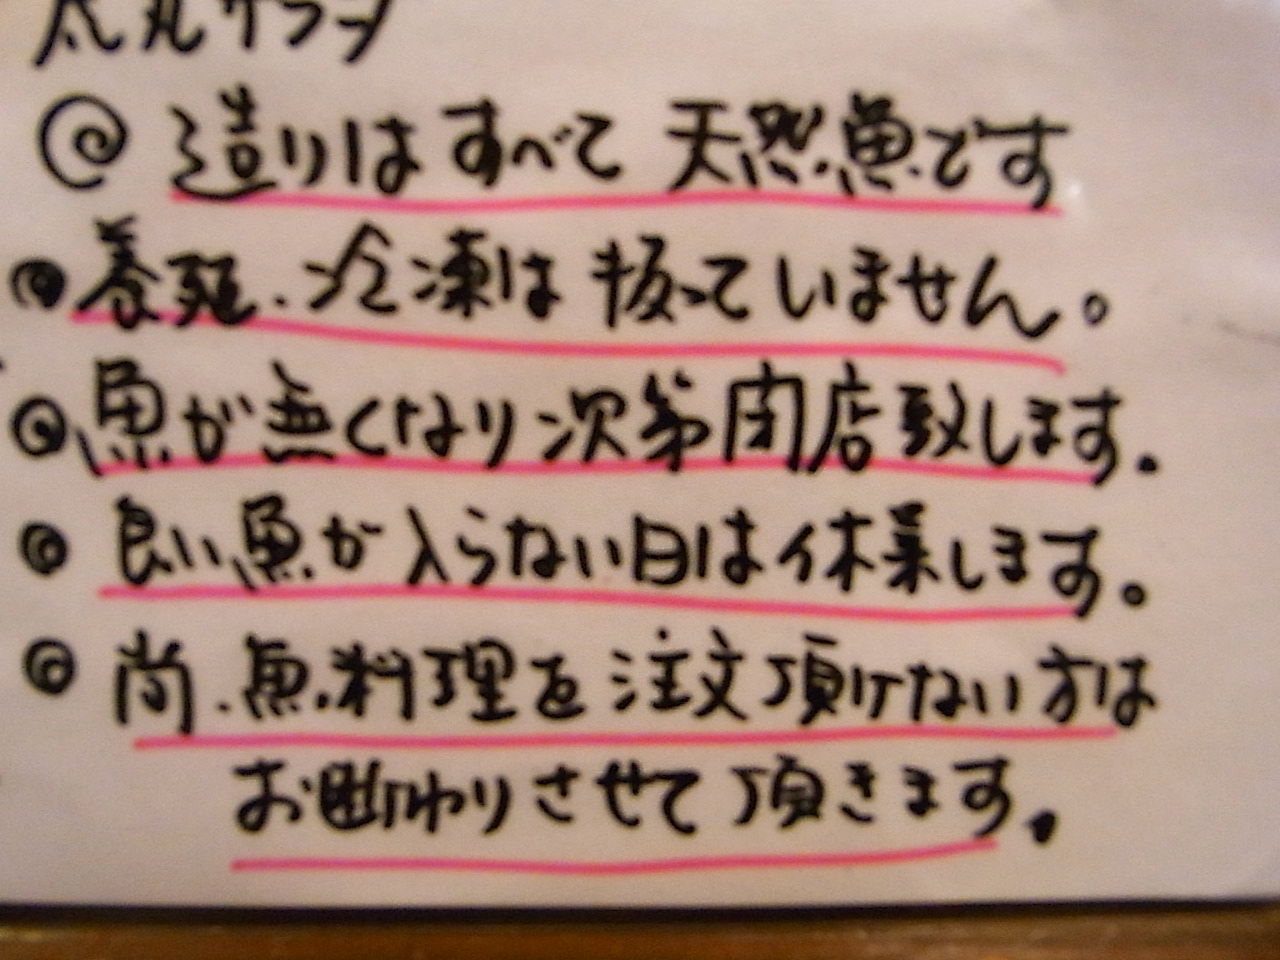 サラダ
造りはすべて天然魚です
養殖.冷凍は扱っていません。
魚が無くなり次第閉店致します.
良い魚が入らない日は休業します。
尚.魚料理を注文頂けない方は
お断わりさせて頂きます.